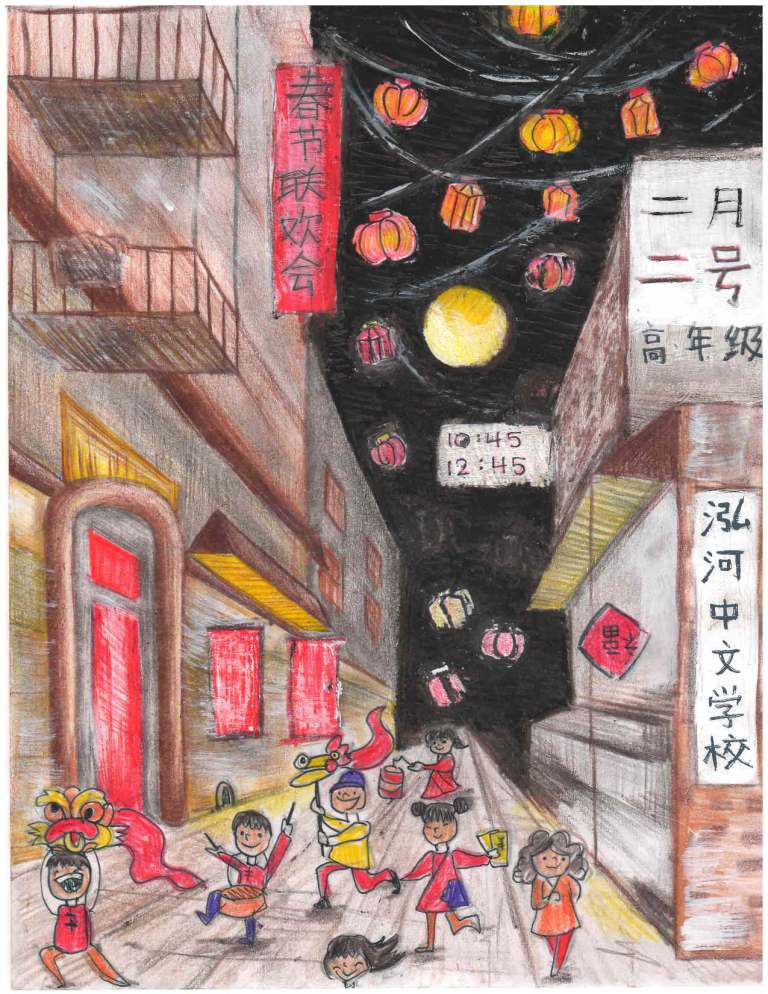 春节联欢会
二月
二号
高年级
10:45
12:45
福
泓河中文学校